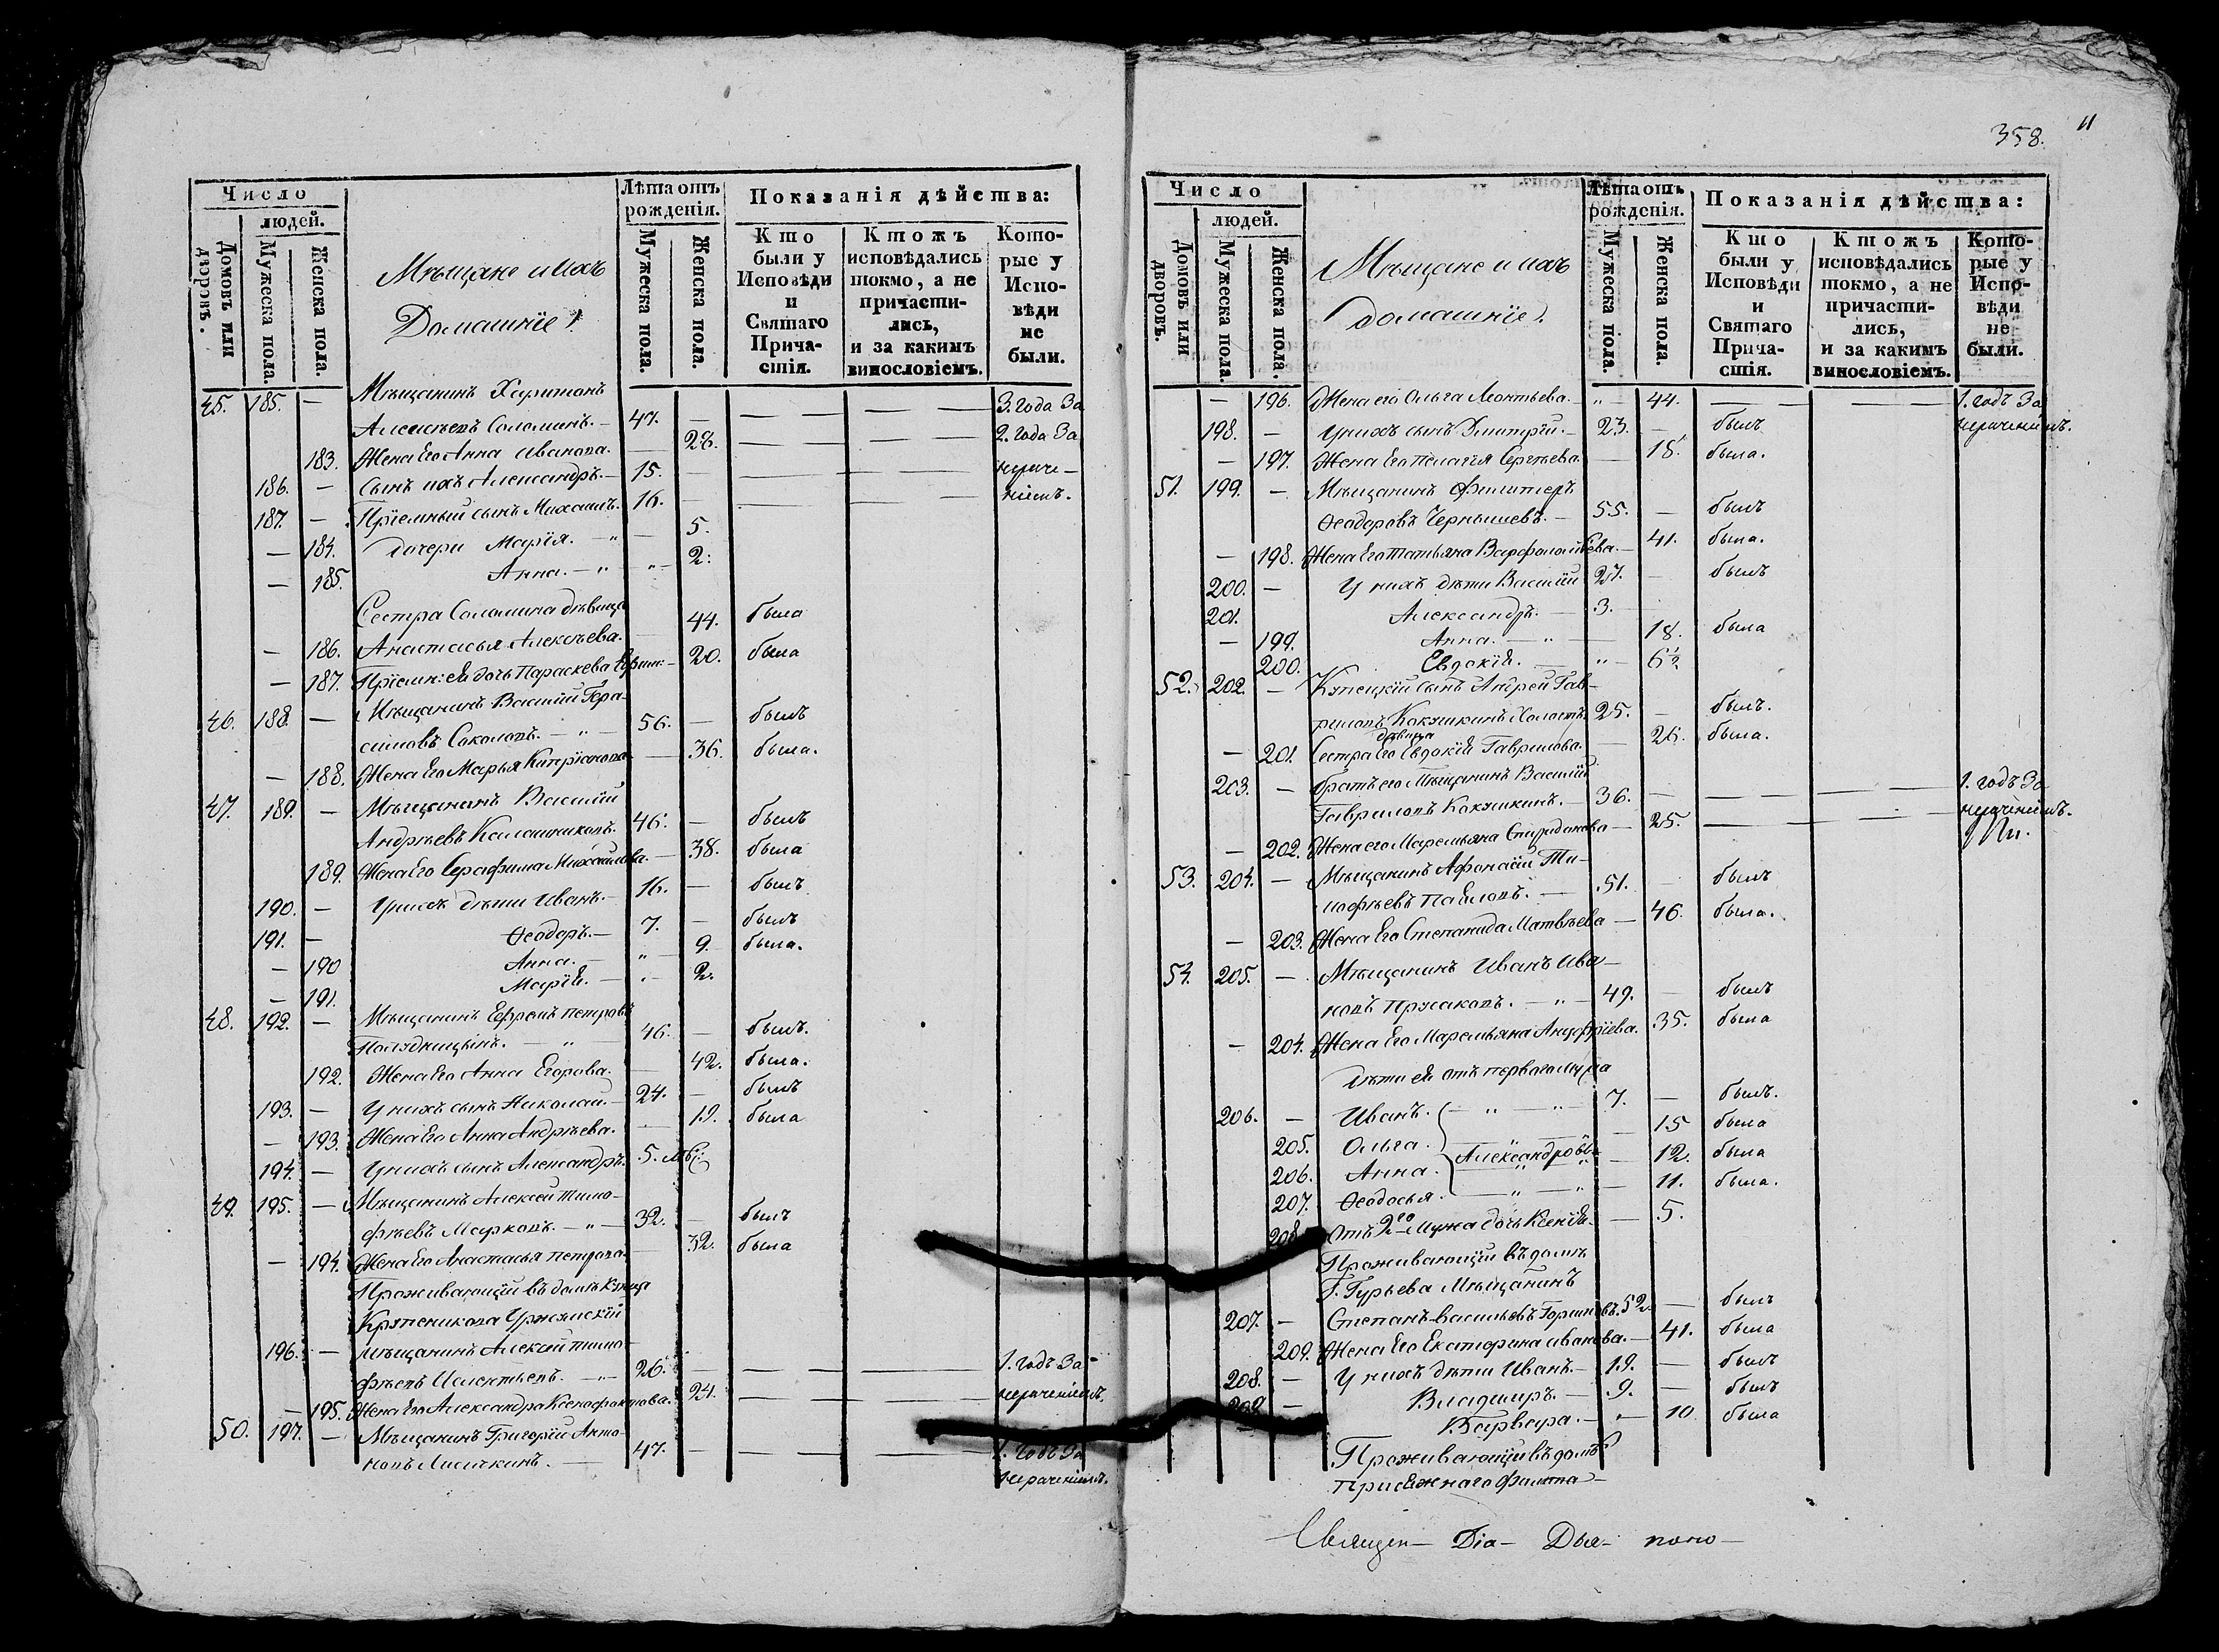 Число
людей.
Домовъ или дворовъ.
Мужеска пола.
Женска пола.
Мѣщане и ихъ
Домашніе.
Лѣта отъ рожденія.
Мужеска пола.
Женска пола.
Показанія дѣйства:
Кто были у Исповѣди и Святаго Причастія.
Ктожъ исповѣдались токмо, а не причастились, и за какимъ винословіемъ.
Которые у Исповѣди не были.
45. 185. — Мѣщанинъ Харитонъ 3. года За
Алексѣевъ Соломинъ. — 47. — 2. года За
183. Жена Его Анна Иванова. 28. нераче-
186. — Сынъ ихъ Александръ. — 15. — ніемъ.
187. — Пріемный сынъ Михаилъ. 16. —
— 184. дочери Марія. — 5.
— 185. Анна. — 2.
Сестра Соломина дѣвица
— 186. Анастасья Алексѣева. 44. была
— 187. Пріемн: ея дочь Параскева 20. была
46. 188. — Мѣщанинъ Василій Гера-
симовъ Соколовъ. — 56. — былъ
— 188. Жена Его Марья Кипріанова — 36. была.
47. 189. — Мѣщанинъ Василій
Андрѣевъ Калашниковъ. 46. — былъ
189. Жена Его Серафима Михайлова. — 38. была
190. — У нихъ дѣти Иванъ. — 16. — былъ
191. — Ѳеодоръ. — 7. — былъ
— 190 Анна. — 9. была.
— 191. Марія. — 2.
48. 192. — Мѣщанинъ Ефремъ Петровъ
46. — былъ.
192. Жена Его Анна Егорова. 42. была.
193. — У нихъ сынъ Николай. — 24. — былъ
— 193. Жена Его Анна Андрѣева. 19. была
194. — У нихъ сынъ Александръ. 5.
49. 195. — Мѣщанинъ Алексѣй Тимо-
фѣевъ Марковъ. — 32. — былъ
— 194. Жена Его Анастасья Петрова. 32. была
Проживающій въ домѣ Купца
196. — Мѣщанинъ Алексѣй Тимо-
фѣевъ 26. — 1. годъ За
— 195. Жена Его Александра Ксенофонтова. 24. нераченіемъ.
50. 197. — Мѣщанинъ Григорій Анто-
новъ Лисичкинъ. — 47. — 1. годъ За
нераченіемъ.
358. 11
Число
людей.
Домовъ или дворовъ.
Мужеска пола.
Женска пола.
Мѣщане и ихъ
домашніе.
Лѣта отъ рожденія.
Мужеска пола.
Женска пола.
Показанія дѣйства:
Кто были у Исповѣди и Святаго Причастія.
Ктожъ исповѣдались токмо, а не причастились, и за какимъ винословіемъ.
Которые у Исповѣди не были.
— 196. Жена его Ольга Леонтьева. — 44. 1. годъ За
198. — У нихъ сынъ Дмитрій. — 23. — былъ нераченіемъ.
— 197. Жена Его Пелагія Сергѣева. 18. была.
51. 199. — Мѣщанинъ Филитеръ
Ѳеодоровъ Чернышевъ. — 55. — былъ
— 198. Жена Его Татьяна Варфоломѣева. — 41. была.
200. — У нихъ дѣти Василій 27. — былъ
201. Александръ. — 3.
— 199. Анна. — 18. была
200. Евдокія. — 6½
52. 202. — Купецкій сынъ Андрей Гав-
риловъ Кокушкинъ Холостъ. 25. — былъ.
дѣвица
— 201. Сестра Его Евдокія Гаврилова. 26. была.
203. — братъ его Мѣщанинъ Василій 1. годъ За
Гавриловъ Кокушкинъ. — 36. — нераченіемъ.
— 202. Жена его Маремьяна Спиридонова — 25.
53. 204. — Мѣщанинъ Афонасій Ти-
мофѣевъ Павловъ. — 51. — былъ
— 203. Жена Его Степанида Матвѣева — 46. была.
54. 205. — Мѣщанинъ Иванъ Ива-
новъ 49. — былъ
— 204. Жена Его Маремьяна Ануфріева. 35. была
Дѣти ея отъ перваго мужа
206. — Иванъ. — 7. — былъ.
205. Ольга. — 15 была
206. Анна. Александровы — 12. была
207. Ѳеодосья. — 11. была.
208. Отъ 2го Мужа дочь Ксенія. — 5.
Проживающій въ домѣ
Г. Гурьева Мѣщанинъ
207. — Степанъ Васильевъ 52. — былъ
209. Жена Его Екатерина Иванова. — 41. была
208. — У нихъ дѣти Иванъ. — 19. — былъ
209 — Владимиръ. — 9. — былъ
Варвара. — 10 была
Проживающій въ домѣ
Присяжнаго
Священ— Діа— Дья— поно—